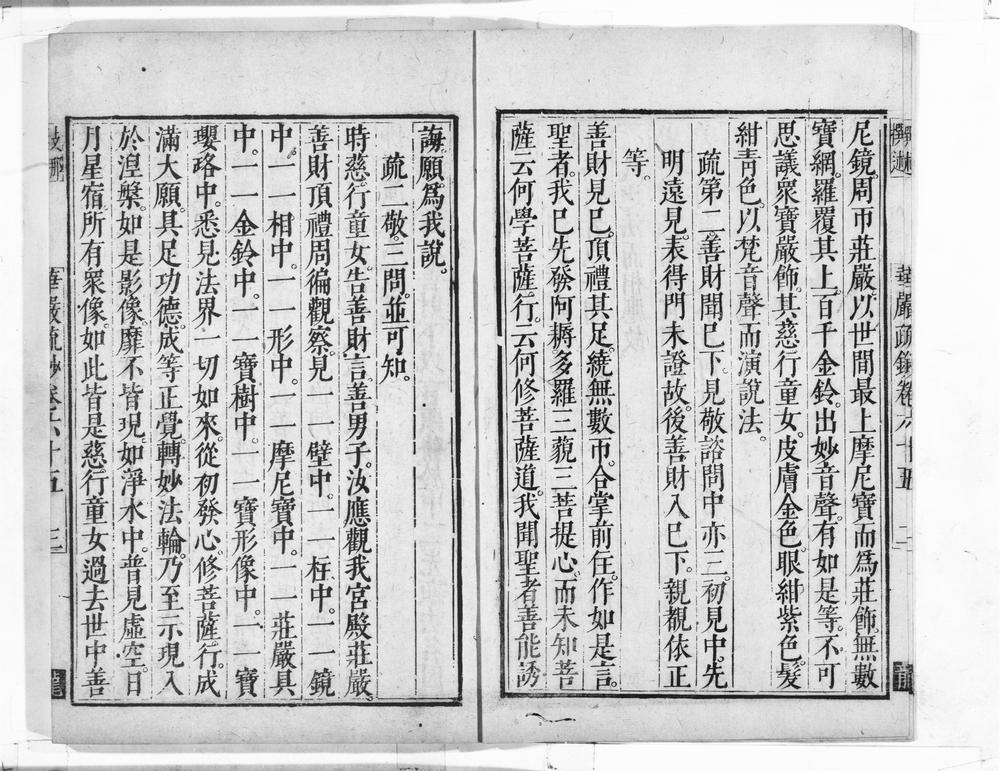 尼鏡。周帀莊嚴。以世間最上摩尼寶而爲莊飾。無數
寶網。羅覆其上。百千金鈴。出妙音聲。有如是等。不可
思議眾寶嚴飾。其慈行童女。皮膚金色。眼紺紫色。髮
紺青色。以梵音聲而演說法。
疏第二善財聞已下。見敬諮問中亦二。初見中。先
明遠見。表得門未證故。後善財入已下。親覩依正
等。
善財見已。頂禮其足。繞無數帀。合掌前住。作如是言。
聖者。我已先發阿耨多羅三藐三菩提心。而未知菩
薩云何學菩薩行。云何修菩薩道。我聞聖者善能誘
華嚴疏鈔卷六十五 二
龍
誨。願爲我說。
疏二敬。三問。並可知。
時慈行童女。告善財言。善男子。汝應觀我宮殿莊嚴。
善財頂禮周徧觀察。見一一壁中。一一柱中。一一鏡
中。一一相中。一一形中。一一摩尼寶中。一一莊嚴具
中。一一金鈴中。一一寶樹中。一一寶形像中。一一寶
瓔珞中。悉見法界一切如來。從初發心。修菩薩行。成
滿大願。具足功德。成等正覺。轉妙法輪。乃至示現入
於湼槃。如是影像。靡不皆現。如淨水中。普見虛空。日
月星宿。所有眾像。如此皆是慈行童女。過去世中善
華嚴疏鈔卷六十五 三
龍